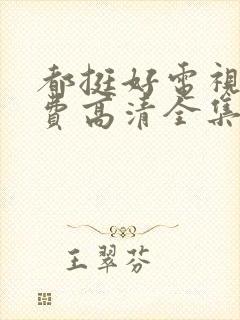 都挺好電視
費高清全集
王翠芬